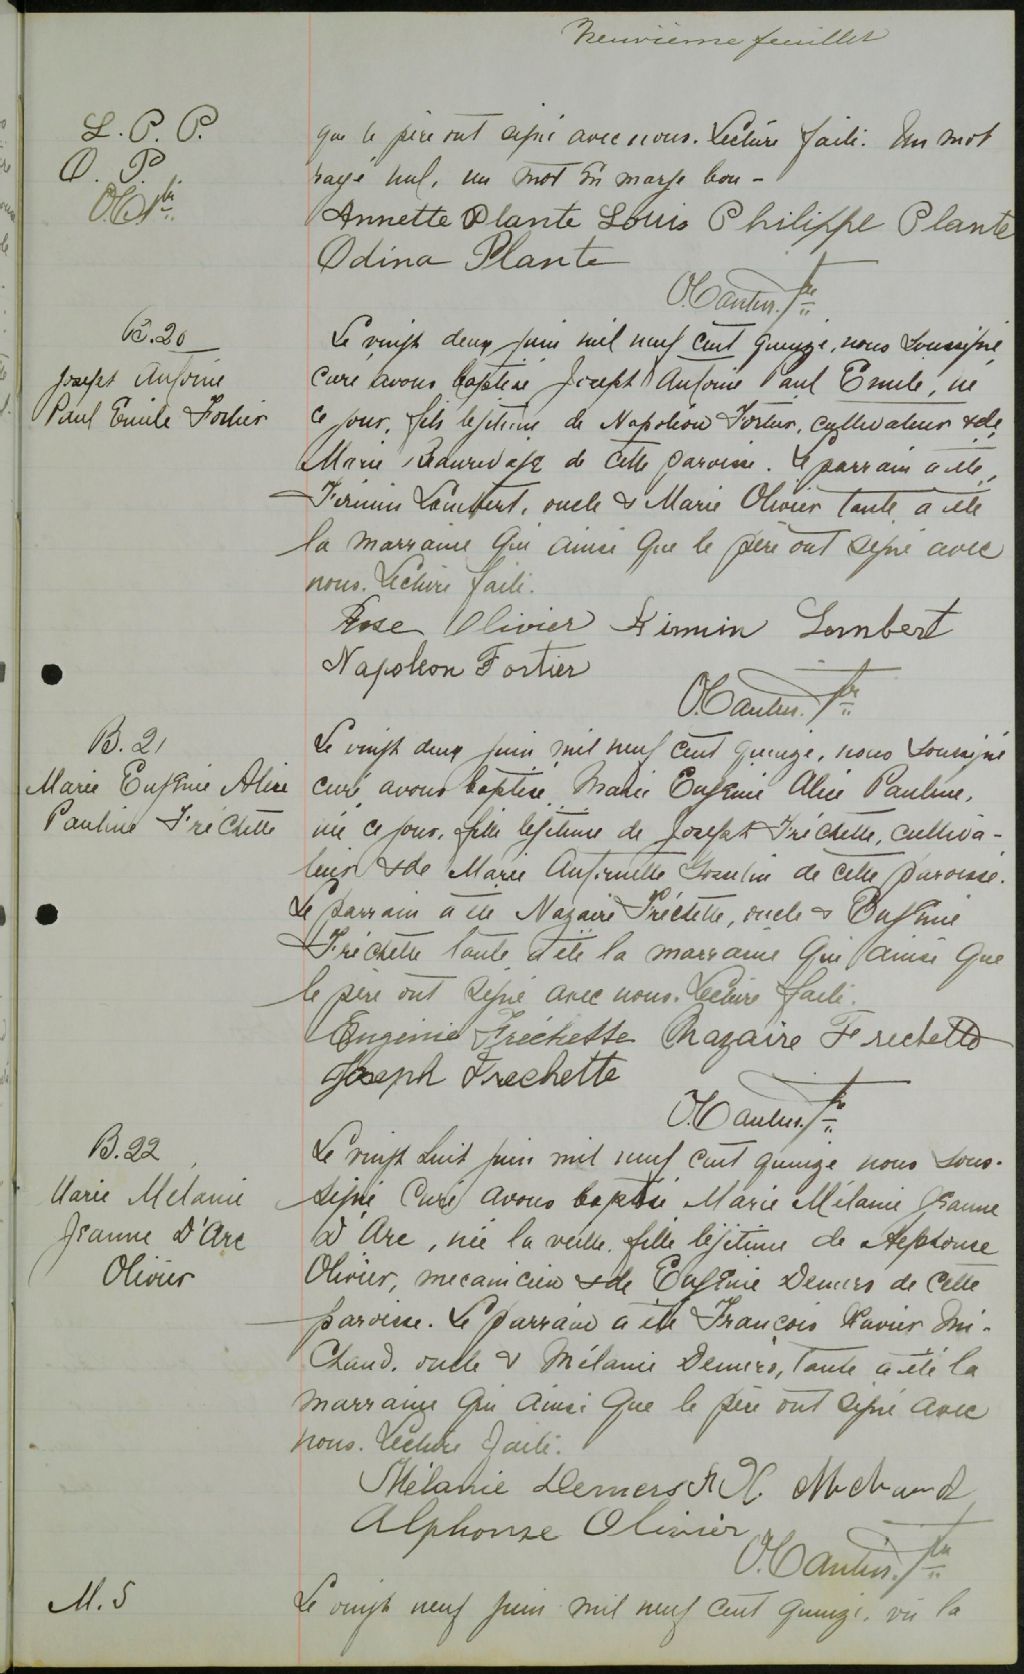 Neuvième feuillet
L. P. P.
O. P.
que le père ont signé avec nous. Lecture faite. Un mot
rayé nul, un mot en marge bon -
Annette Plante Louis Philippe Plante
Odina Plante
B. 20
Joseph Antoine
Paul Emile Fortier
Le vingt deux juin mil neuf cent quinze, nous soussigné
curé avons baptisé Joseph Antoine Paul Emile, né
ce jour, fils légitime de Napoléon Fortier, cultivateur & de
Marie de cette paroisse. Le parrain a été
Firmin Lambert, oncle & Marie Olivier tante a été
la marraine qui ainsi que le père ont signé avec
nous. Lecture faite.
Rose Olivier Firmin Lambert
Napoleon Fortier
B. 21
Marie Eugénie Alice
Pauline Fréchette
Le vingt deux juin mil neuf cent quinze, nous soussigné
curé avons baptisé Marie Eugénie Alice Pauline,
née ce jour, fille légitime de Joseph Fréchette, cultiva-
teur & de Marie Antoinette de cette paroisse.
Le parrain a été Nazaire Fréchette, oncle & Eugénie
Fréchette tante a été la marraine qui ainsi que
le père ont signé avec nous. Lecture faite.
Eugénie Fréchette Nazaire Frechette
Joseph Frechette
B. 22
Marie Mélanie
Jeanne D'Arc
Olivier
Le vingt huit juin mil neuf cent quinze nous sous-
signé Curé avons baptisé Marie Mélanie Jeanne
D'Arc, née la veille, fille légitime de Alphonse
Olivier, mecanicien & de Eugénie Demers de cette
paroisse. Le parrain a été François Xavier Mi-
chaud, oncle & Mélanie Demers, tante a été la
marraine qui ainsi que le père ont signé avec
nous. Lecture faite.
Mélanie Demers F. X. Michaud
Alphonse Olivier
M. 5
Le vingt neuf juin mil neuf cent quinze, vu la